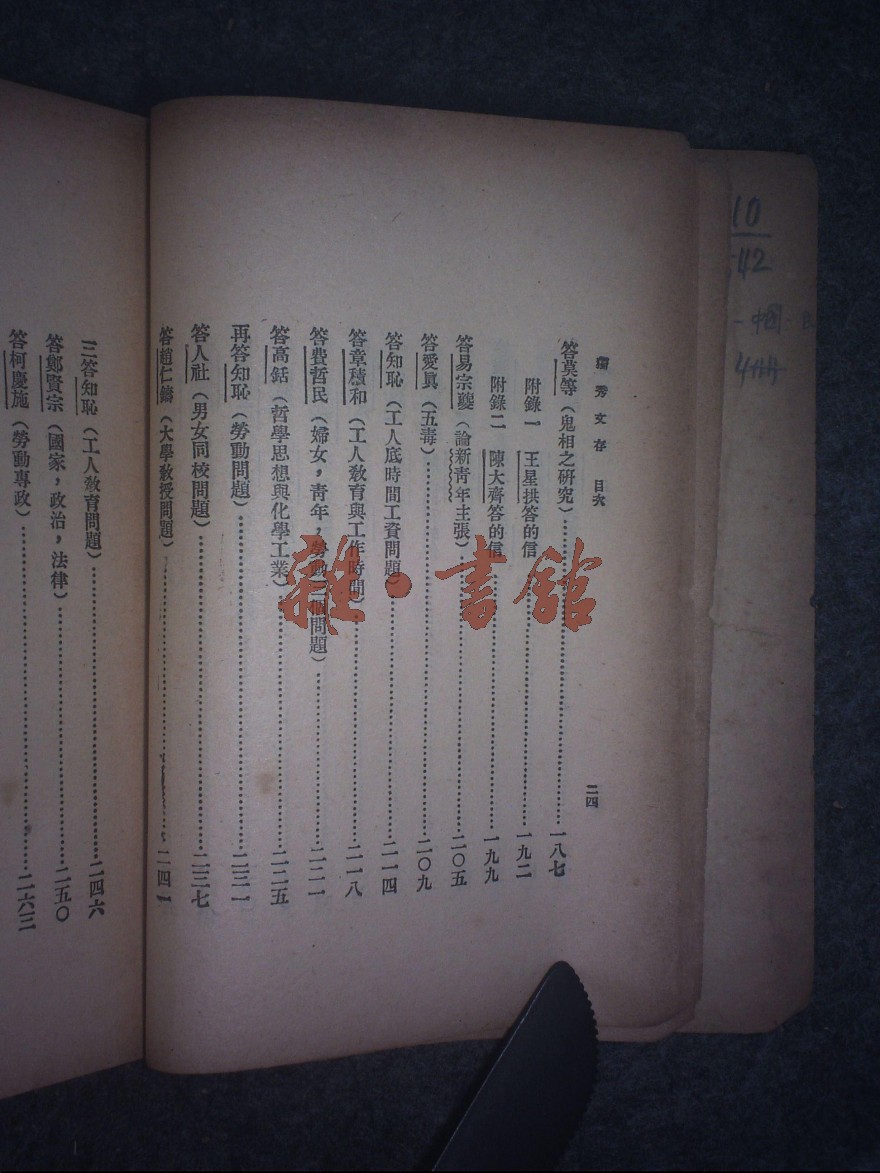 獨秀文存 目次
二四
答莫等（鬼相之研究）……一八七
附錄一 王星拱答的信……一九二
附錄二 陳大齊答的信……一九九
答易宗夔（論新靑年主張）……二〇五
答愛眞（五毒）……二〇九
答知恥（工人底時間工資問題）……二一四
答章積和（工人敎育與工作時間）……二一八
答費哲民（婦女，靑年，勞動三個問題）……二二一
答高銛（哲學思想與化學工業）……二二五
再答知恥（勞動問題）……二三一
答人社（男女同校問題）……二三七
答趙仁鑄（大學敎授問題）……二四一
三答知恥（工人敎育問題）……二四六
答鄭賢宗（國家，政治，法律）……二五〇
答柯慶施（勞動專政）……二六三
雜·書館
10
42
中國